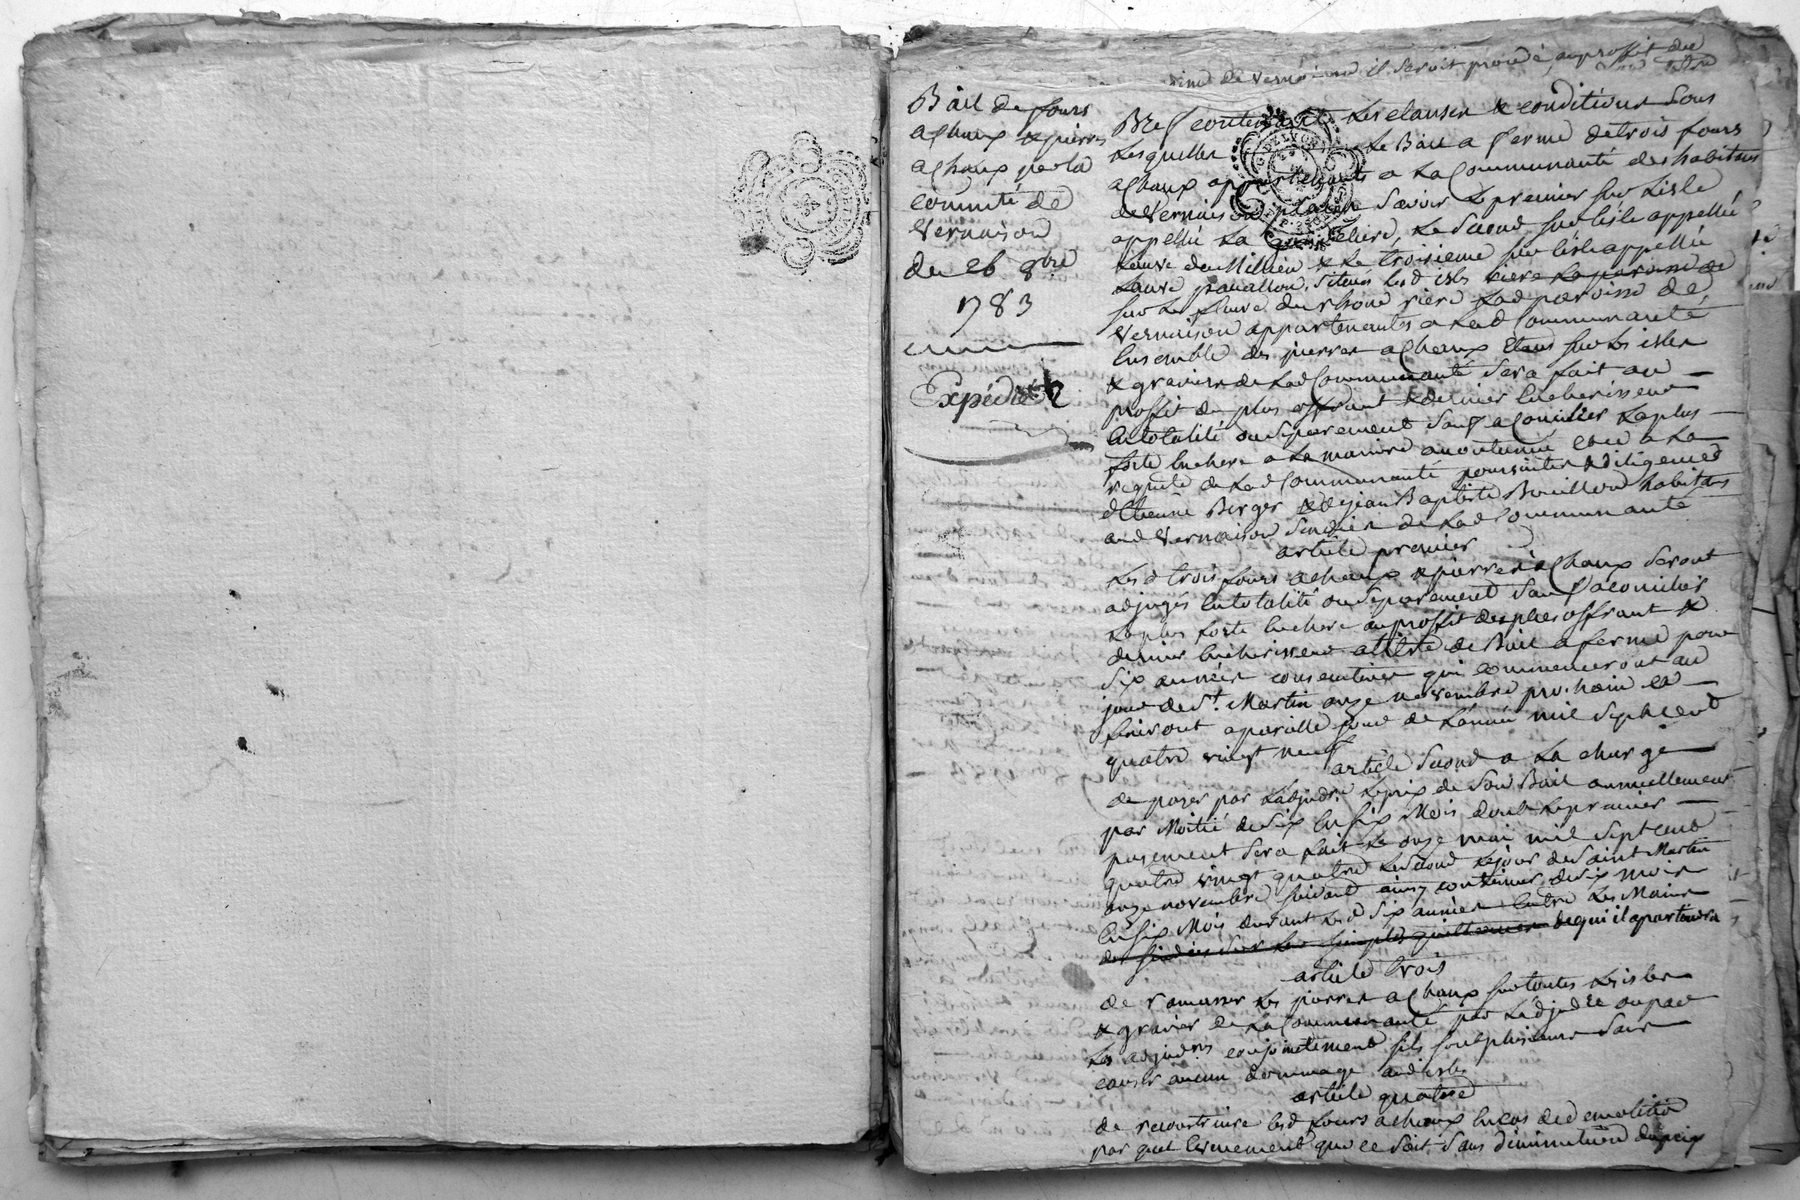 Bail de fours
a chaux & pierres
a chaux par la
com̃uté de
Vernaison
du 26 8bre
1783
Expédié
de Vernaison il seroit procédé, au proffit du
Bref contenant les clauses & conditions sous
lesquelles le Bail a ferme de trois fours
a chaux appartenants a la Communauté des habitans
de Vernaison, placés Scavoir le premier sur l'isle
appellée la, le Second sur l'isle appellée
du Millieu & le troisieme sur l'isle appellée
situés lesd isles riere la paroisse de
sur le fleuve du rhône riere lad paroisse de
Vernaison appartenantes a lad Communauté
Ensemble des pierres a chaux etans sur les isles
& graviers de lad Communauté Sera fait au
proffit du plus offrant & dernier Encherisseur
En totalité ou Séparement Sauf a concilier la plus
forte Enchere a la maniere accoutumée et ce a la
requete de lad Communauté poursuites & diligences
d'Etienne Berger & de Jean Baptiste Bouillon habitans
aud Vernaison Sindics de lad Communauté
article premier
Lesd trois fours a chaux & pierres a chaux Seront
adjugés En totalité ou Séparement Sauf a concilier
la plus forte Enchere au proffit du plus offrant &
dernier Encherisseur a titre de Bail a ferme pour
Six années consecutives qui commenceront au
jour de St. Martin onze novembre prochain et
finiront a pareille jour de l'année mil Sept cent
quatre vingt neuf
article Second a la charge
de payer par l'adjudre le prix de Son Bail annuellement
par Moitié de Six En Six Mois dont le premier
payement Sera fait le onze mai mil Sept cent
quatre vingt quatre le Second le jour de Saint Martin
onze novembre Suivant ainsy continuer de Six mois
En Six Mois durant lesd Six années Entre les Mains
des Sindics Sur leurs Simples quittances de qui il apartiendra
article trois
de ramasser les pierres a chaux sur toutes les isles
& gravier de la Communauté par l'adjudre ou par
les adjudres conjointement s'ils sont plusieurs Sans
causer aucun dommage auxd isles
article quatre
de reconstruire lesd fours a chaux En cas de demolition
par quel Evenement que ce Soit, Sans diminution du prix